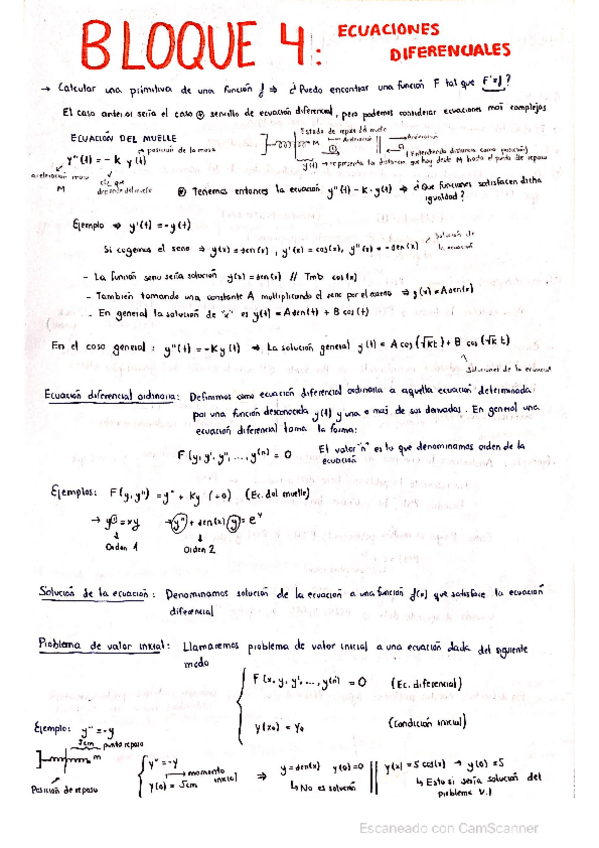 BLOQUE 4: ECUACIONES DIFERENCIALES
→ Calcular una primitiva de una función f ⇒ ¿Puedo encontrar una función F tal que F'=f?
El caso anterior sería el caso ⊕ sencillo de ecuación diferencial, pero podemos considerar ecuaciones más complejas
ECUACIÓN DEL MUELLE
Estado de reposo del muelle
y''(t) = -k y(t)
→ posición de la masa
M
(Entendiendo distancia como posición)
y(t) → representa la distancia que hay desde M hasta el punto de reposo
aceleración masa M
cte que depende del muelle
⊕ Tenemos entonces la ecuación y''(t) - K·y(t) → ¿Que funciones satisfacen dicha igualdad?
Ejemplo ⇒ y''(t) = -y(t)
Si cogemos el seno ⇒ y(x) = sen(x), y'(x) = cos(x), y''(x) = -sen(x)
Solución de la ecuación
- La función seno sería solución y(x) = sen(x) // Tmb cos(x)
- También tomando una constante A multiplicando el seno por el mismo ⇒ y(x) = A sen(x)
- En general la solución de es y(t) = A sen(t) + B cos(t)
En el caso general: y''(t) = -K y(t) ⇒ La solución general y(t) = A cos(√K t) + B cos(√K t)
Soluciones de la ecuación
Ecuación diferencial ordinaria: Definimos como ecuación diferencial ordinaria a aquella ecuación determinada
por una función desconocida y(t) y una o mas de sus derivadas. En general una
ecuación diferencial toma la forma:
F(y, y', y'', ..., y(n)) = 0
El valor "n" es lo que denominamos orden de la ecuación
Ejemplos: F(y, y'') = y'' + Ky (=0) (Ec. del muelle)
→ y' = xy
→ y'' + sen(x) y = e^x
Orden 1
Orden 2
Solución de la ecuación: Denominamos solución de la ecuación a una función f(x) que satisface la ecuación
diferencial
Problema de valor inicial: Llamaremos problema de valor inicial a una ecuación dada del siguiente
modo
F(x, y, y', ..., y(n)) = 0 (Ec. diferencial)
y(x0) = y0 (Condición inicial)
Ejemplo: y'' = -y
5cm punto reposo
M
Posición de reposo
y'' = -y
y(0) = 5cm
→ momento inicial
⇒ y = sen(x) y(0) = 0
↳ No es solución
y(x) = 5 cos(x) → y(0) = 5
↳ Esto si sería solución del problema V.I
Escaneado con CamScanner